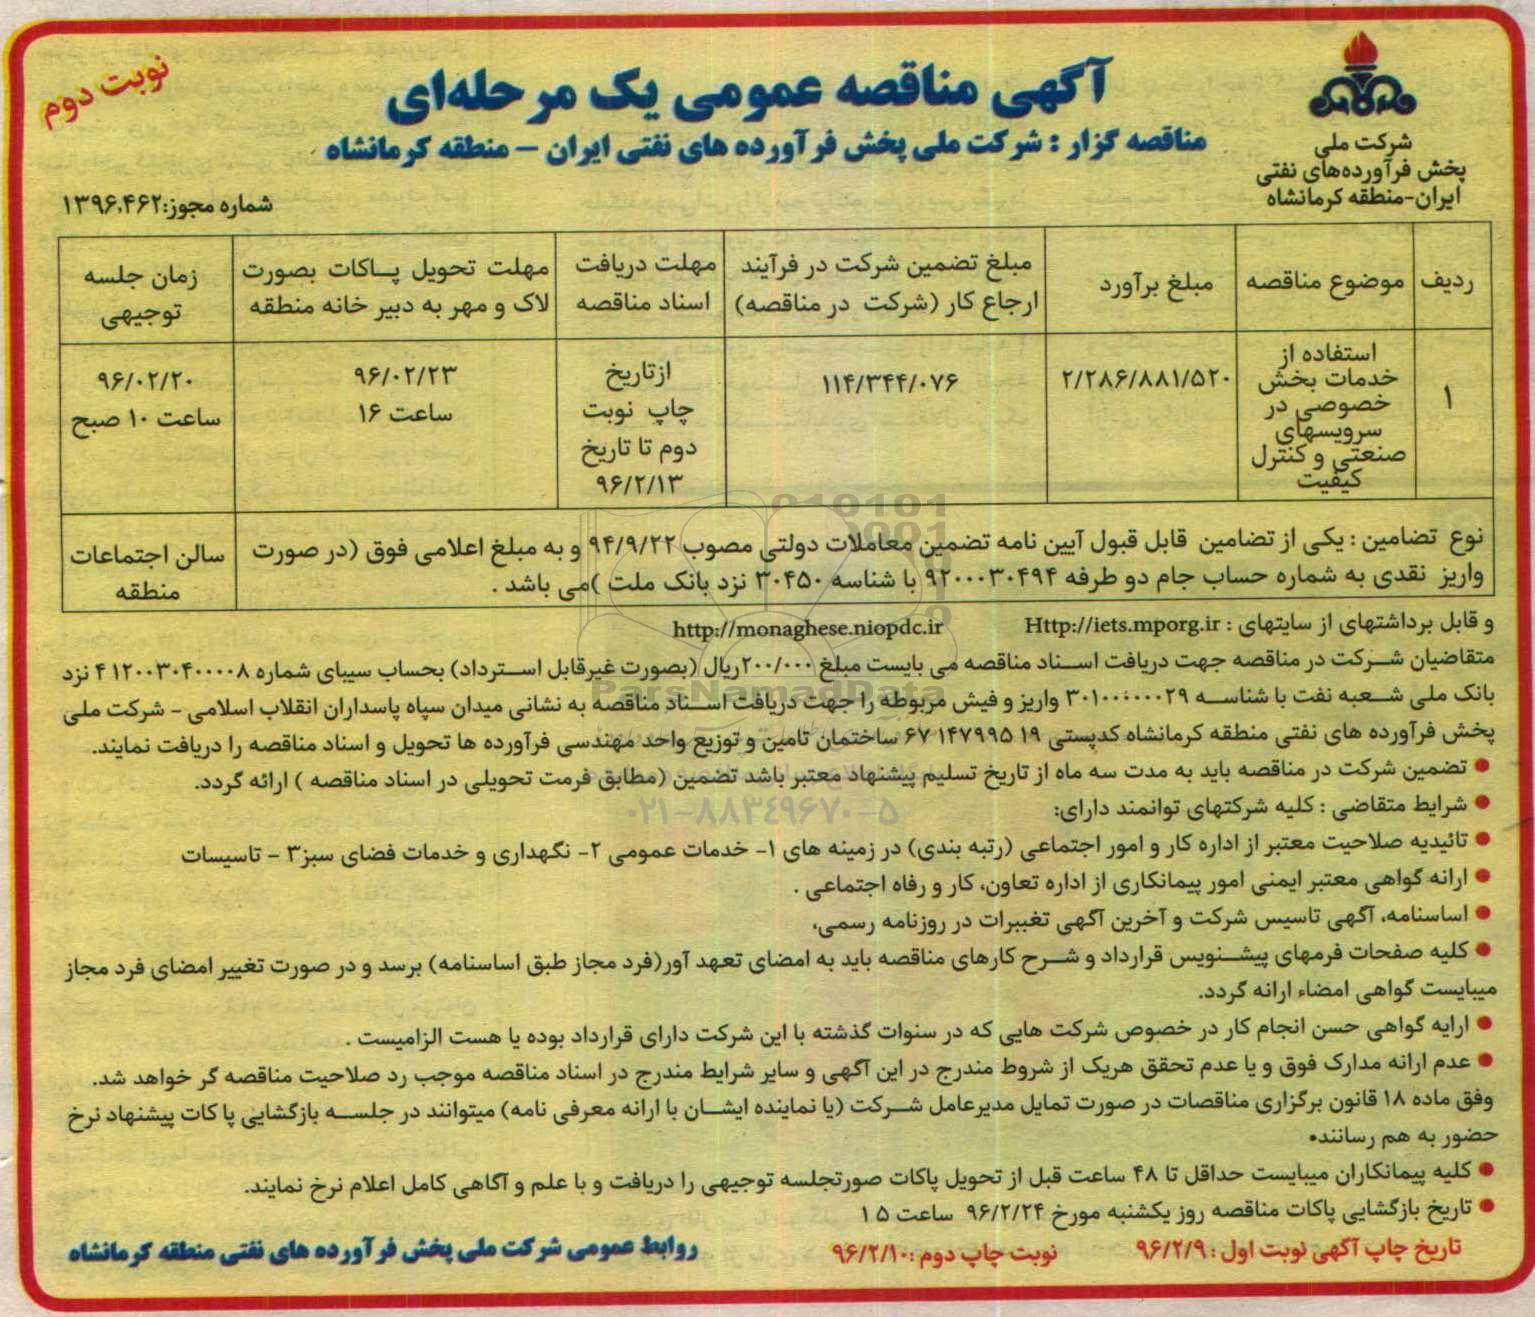 نوبت دوم
آگهی مناقصه عمومی یک مرحله‌ای
مناقصه گزار : شرکت ملی پخش فرآورده های نفتی ایران – منطقه کرمانشاه
شرکت ملی
پخش فرآورده‌های نفتی
ایران-منطقه کرمانشاه
شماره مجوز:۱۳۹۶،۴۶۲
ردیف
موضوع مناقصه
مبلغ برآورد
مبلغ تضمین شرکت در فرآیند
ارجاع کار (شرکت در مناقصه)
مهلت دریافت
اسناد مناقصه
مهلت تحویل پاکات بصورت
لاک و مهر به دبیر خانه منطقه
زمان جلسه
توجیهی
۱
استفاده از
خدمات بخش
خصوصی در
سرویسهای
صنعتی و کنترل
کیفیت
۲/۲۸۶/۸۸۱/۵۲۰
۱۱۴/۳۴۴/۰۷۶
ازتاریخ
چاپ نوبت
دوم تا تاریخ
۹۶/۲/۱۳
۹۶/۰۲/۲۳
ساعت ۱۶
۹۶/۰۲/۲۰
ساعت ۱۰ صبح
نوع تضامین : یکی از تضامین قابل قبول آیین نامه تضمین معاملات دولتی مصوب ۹۴/۹/۲۲ و به مبلغ اعلامی فوق (در صورت
واریز نقدی به شماره حساب جام دو طرفه ۹۲۰۰۰۳۰۴۹۴ با شناسه ۳۰۴۵۰ نزد بانک ملت )می باشد .
سالن اجتماعات
منطقه
و قابل برداشتهای از سایتهای : Http://iets.mporg.ir http://monaghese.niopdc.ir
متقاضیان شرکت در مناقصه جهت دریافت اسناد مناقصه می بایست مبلغ ۲۰۰/۰۰۰ریال (بصورت غیرقابل استرداد) بحساب سیبای شماره ۴۱۲۰۰۳۰۴۰۰۰۰۸ نزد
بانک ملی شعبه نفت با شناسه ۳۰۱۰۰۰۰۰۰۲۹ واریز و فیش مربوطه را جهت دریافت اسناد مناقصه به نشانی میدان سپاه پاسداران انقلاب اسلامی – شرکت ملی
پخش فرآورده های نفتی منطقه کرمانشاه کدپستی ۶۷۱۴۷۹۹۵۱۹ ساختمان تامین و توزیع واحد مهندسی فرآورده ها تحویل و اسناد مناقصه را دریافت نمایند.
● تضمین شرکت در مناقصه باید به مدت سه ماه از تاریخ تسلیم پیشنهاد معتبر باشد تضمین (مطابق فرمت تحویلی در اسناد مناقصه ) ارائه گردد.
● شرایط متقاضی : کلیه شرکتهای توانمند دارای:
● تائیدیه صلاحیت معتبر از اداره کار و امور اجتماعی (رتبه بندی) در زمینه های ۱- خدمات عمومی ۲- نگهداری و خدمات فضای سبز۳ – تاسیسات
● ارائه گواهی معتبر ایمنی امور پیمانکاری از اداره تعاون، کار و رفاه اجتماعی .
● اساسنامه، آگهی تاسیس شرکت و آخرین آگهی تغییرات در روزنامه رسمی،
● کلیه صفحات فرمهای پیشنویس قرارداد و شرح کارهای مناقصه باید به امضای تعهد آور(فرد مجاز طبق اساسنامه) برسد و در صورت تغییر امضای فرد مجاز
میبایست گواهی امضاء ارائه گردد.
● ارایه گواهی حسن انجام کار در خصوص شرکت هایی که در سنوات گذشته با این شرکت دارای قرارداد بوده یا هست الزامیست .
● عدم ارائه مدارک فوق و یا عدم تحقق هریک از شروط مندرج در این آگهی و سایر شرایط مندرج در اسناد مناقصه موجب رد صلاحیت مناقصه گر خواهد شد.
وفق ماده ۱۸ قانون برگزاری مناقصات در صورت تمایل مدیرعامل شرکت (یا نماینده ایشان با ارائه معرفی نامه) میتوانند در جلسه بازگشایی پاکات پیشنهاد نرخ
حضور به هم رسانند.
● کلیه پیمانکاران میبایست حداقل تا ۴۸ ساعت قبل از تحویل پاکات صورتجلسه توجیهی را دریافت و با علم و آگاهی کامل اعلام نرخ نمایند.
● تاریخ بازگشایی پاکات مناقصه روز یکشنبه مورخ ۹۶/۲/۲۴ ساعت ۱۵
تاریخ چاپ آگهی نوبت اول : ۹۶/۲/۹
نوبت چاپ دوم :۹۶/۲/۱۰
روابط عمومی شرکت ملی پخش فرآورده های نفتی منطقه کرمانشاه
ParsNamadData
۰۲۱-۸۸۳۴۹۶۷۰-۵